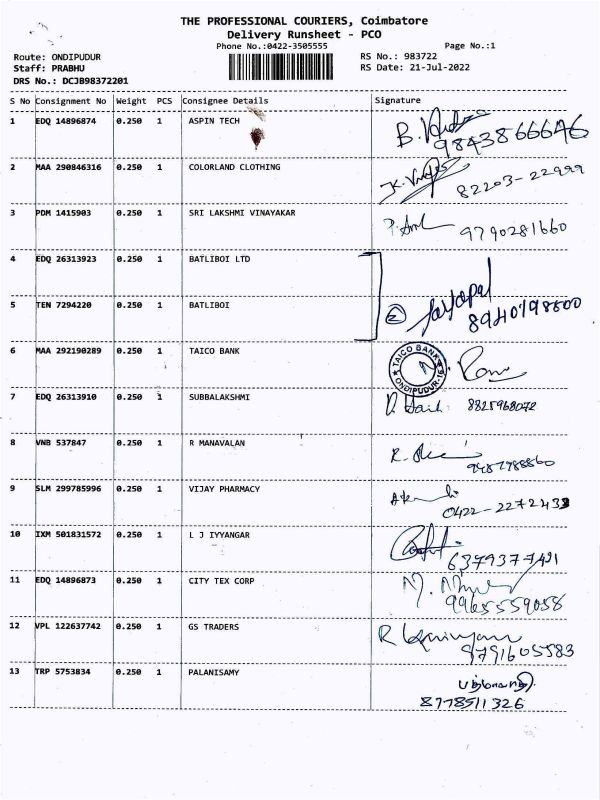 THE PROFESSIONAL COURIERS, Coimbatore
Delivery Runsheet - PCO
Phone No.:0422-3505555 Page No.:1
Route: ONDIPUDUR RS No.: 983722
Staff: PRABHU RS Date: 21-Jul-2022
DRS No.: DCJB98372201
S No Consignment No Weight PCS Consignee Details Signature
1 EDQ 14896874 0.250 1 ASPIN TECH
9843866646
2 MAA 290846316 0.250 1 COLORLAND CLOTHING
82203-22999
3 PDM 1415903 0.250 1 SRI LAKSHMI VINAYAKAR
9790281660
4 EDQ 26313923 0.250 1 BATLIBOI LTD
② Jayapal
5 TEN 7294220 0.250 1 BATLIBOI
8940798800
6 MAA 292190289 0.250 1 TAICO BANK
TAICO BANK ONDIPUDUR-16
7 EDQ 26313910 0.250 1 SUBBALAKSHMI
8825968072
8 VNB 537847 0.250 1 R MANAVALAN
9487988860
9 SLM 299785996 0.250 1 VIJAY PHARMACY
0422-2272433
10 IXM 501831572 0.250 1 L J IYYANGAR
6379377421
11 EDQ 14896873 0.250 1 CITY TEX CORP
9965559058
12 VPL 122637742 0.250 1 GS TRADERS
9791605583
13 TRP 5753834 0.250 1 PALANISAMY
8778511326